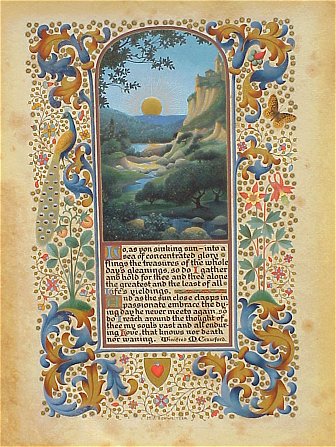 Lo, as yon sinking sun — into a
sea of concentrated glory
flings the treasures of the whole
day's gleanings, so do I gather
and hold for thee and thee alone
the greatest and the least of all
life's yieldings.
And as the sun close clasps in
passionate embrace the dy-
ing day he never meets again, so
do I reach around the thought of
thee my souls vast and all endur-
ing love, that knows nor death
nor waning. Winifred M. Crawford.